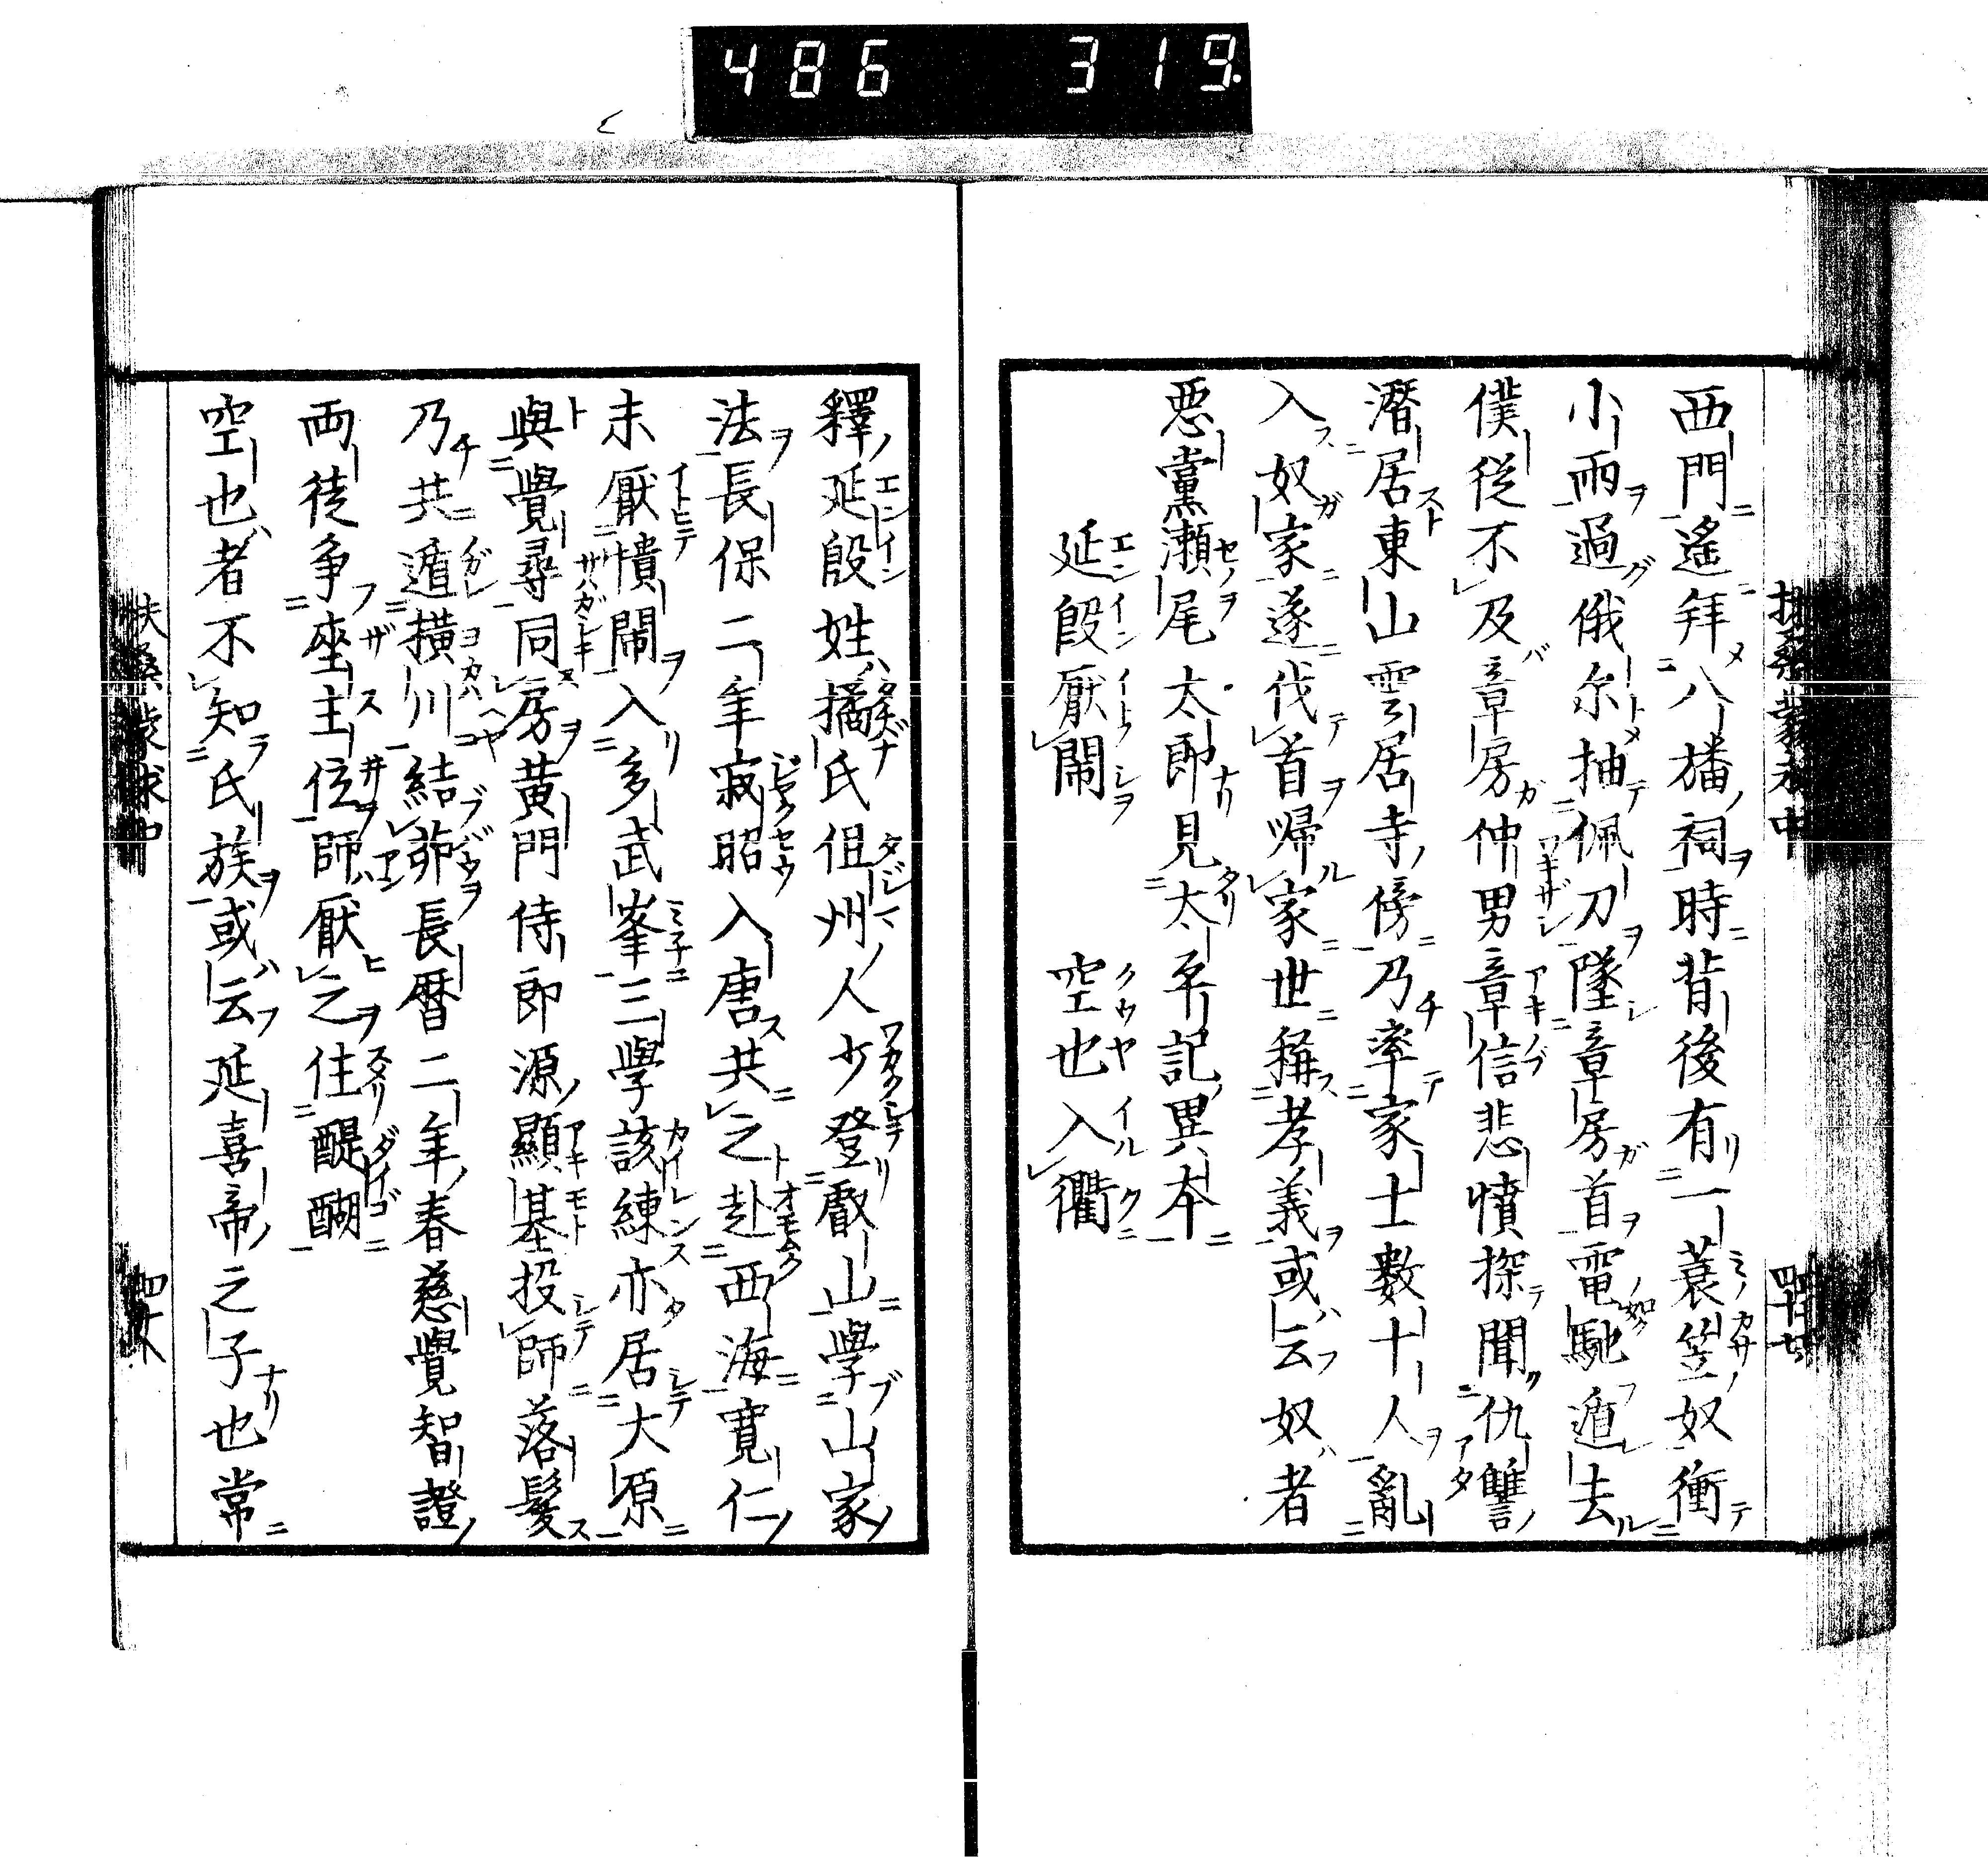 486 319.
西門遙拜八旛祠時背後有一蓑笠奴衝
小雨過俄尔抽佩刀墜章房首電馳遁去
僕從不及章房仲男章信悲憤探聞仇讐
潛居東山雲居寺傍乃率家士數十人亂
入奴家遂伐首歸家世稱孝義或云奴者
悪黨瀬尾太郎見太平記異本
延殷厭閙 空也入衢
釋延殷姓橘氏但州人少登叡山學山家
法長保二年寂昭入唐共之赴西海寛仁
末厭憒閙入多武峯三學該練亦居大原
與覺尋同房黄門侍郎源顯基投師落髮
乃共遁横川結茆長暦二年春慈覺智證
兩徒争座主位師厭之住醍醐
空也者不知氏族或云延喜帝之子也常